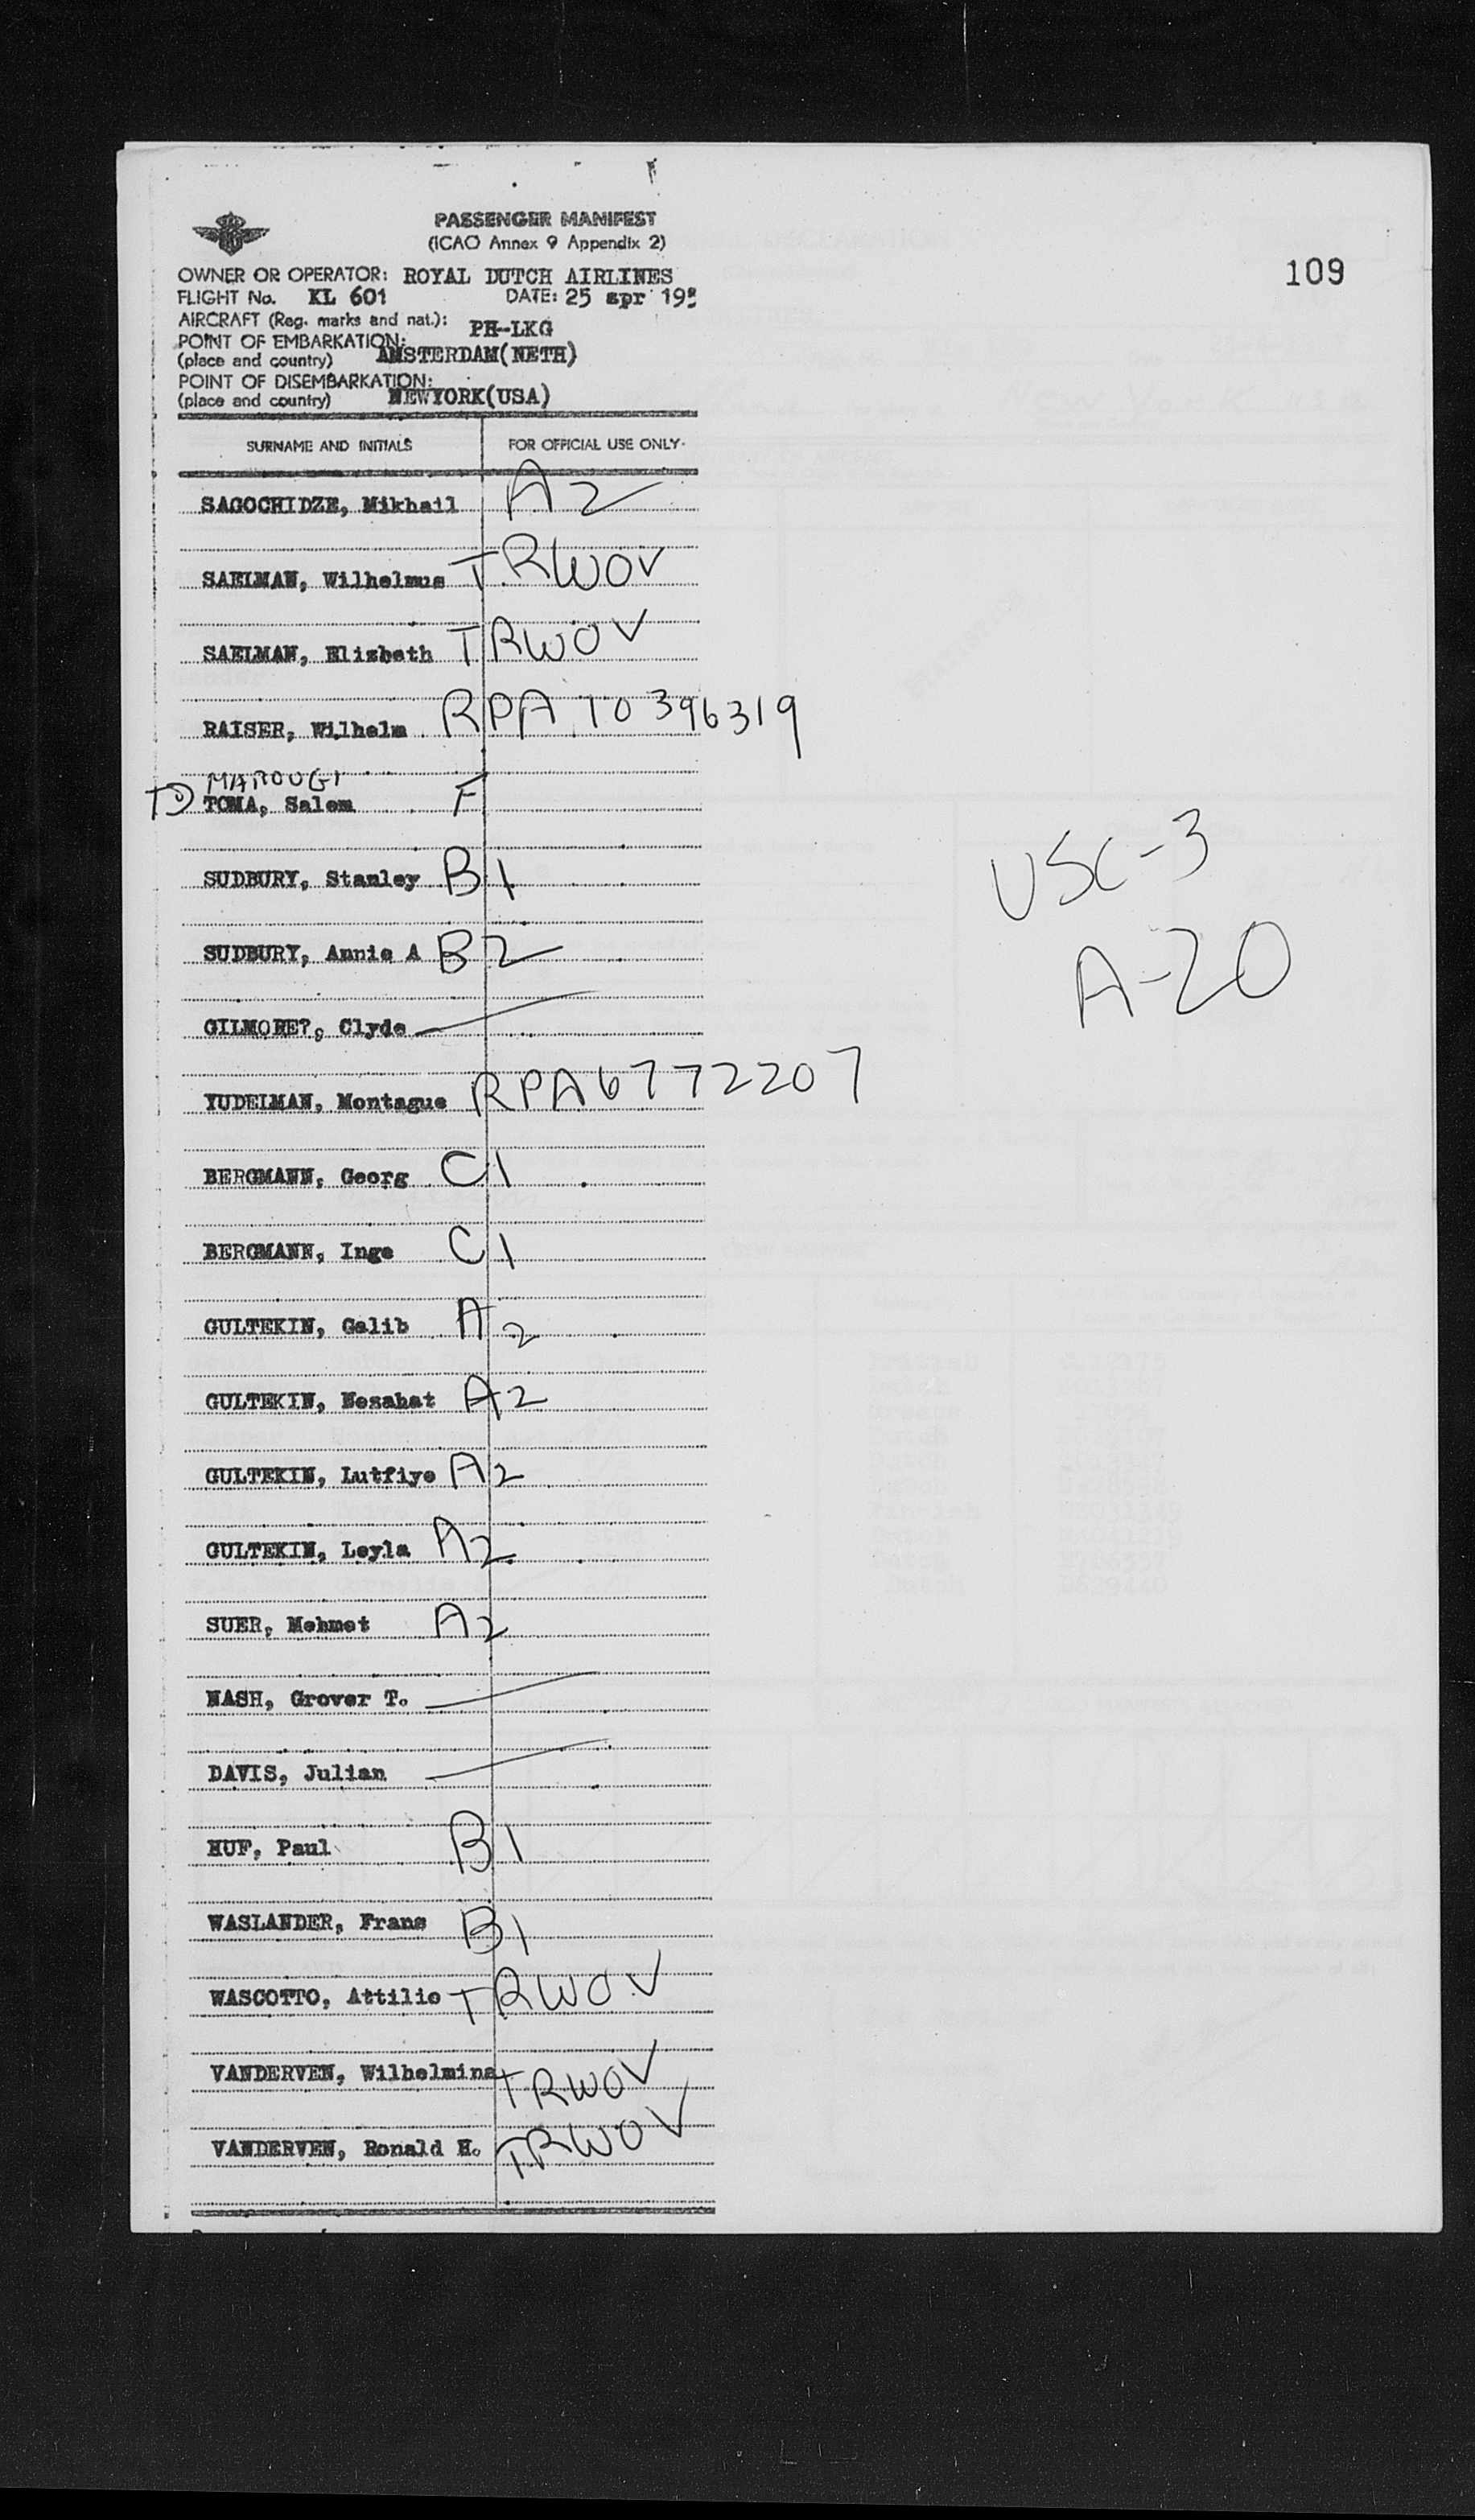 PASSENGER MANIFEST
(ICAO Annex 9 Appendix 2)
109
OWNER OR OPERATOR: ROYAL DUTCH AIRLINES
FLIGHT No. KL 601 DATE: 25 apr 195
AIRCRAFT (Reg. marks and nat.): PH-LKG
POINT OF EMBARKATION:
(place and country) AMSTERDAM(NETH)
POINT OF DISEMBARKATION:
(place and country) NEWYORK(USA)
SURNAME AND INITIALS FOR OFFICIAL USE ONLY
SAGOCHIDZE, Mikhail A2
SAELMAN, Wilhelmus TRWOV
SAELMAN, Elizbeth TRWOV
RAISER, Wilhelm RPA 10396319
MAROUGI
TOMA, Salem F
SUDBURY, Stanley B1
USC-3
SUDBURY, Annie A B2
A-20
GILMORE?, Clyde
YUDELMAN, Montague RPA6772207
BERGMANN, Georg C1
BERGMANN, Inge C1
GULTEKIN, Galib A2
GULTEKIN, Nesahat A2
GULTEKIN, Lutfiye A2
GULTEKIN, Leyla A2
SUER, Mehmet A2
NASH, Grover T.
DAVIS, Julian
HUF, Paul B1
WASLANDER, Frans B1
WASCOTTO, Attilio TRWOV
VANDERVEN, Wilhelmina TRWOV
VANDERVEN, Ronald H. TRWOV